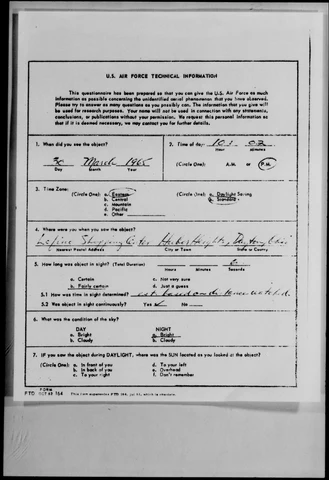 U.S. AIR FORCE TECHNICAL INFORMATION
This questionnaire has been prepared so that you can give the U.S. Air Force as much
information as possible concerning the unidentified aerial phenomenon that you have observed.
Please try to answer as many questions as you possibly can. The information that you give will
be used for research purposes. Your name will not be used in connection with any statements,
conclusions, or publications without your permission. We request this personal information so
that if it is deemed necessary, we may contact you for further details.
1. When did you see the object?
30 March 1965
Day Month Year
2. Time of day: 10:
Hour Minutes
(Circle One): A.M. or P.M.
3. Time Zone:
(Circle One): a. Eastern
b. Central
c. Mountain
d. Pacific
e. Other
(Circle One): a. Daylight Saving
b. Standard
4. Where were you when you saw the object?
Shopping Center Huber Heights, Dayton, Ohio
Nearest Postal Address City or Town State or County
5. How long was object in sight? (Total Duration) 6
Hours Minutes Seconds
a. Certain c. Not very sure
b. Fairly certain d. Just a guess
5.1 How was time in sight determined?
5.2 Was object in sight continuously? Yes No
6. What was the condition of the sky?
DAY NIGHT
a. Bright a. Bright
b. Cloudy b. Cloudy
7. IF you saw the object during DAYLIGHT, where was the SUN located as you looked at the object?
(Circle One): a. In front of you d. To your left
b. In back of you e. Overhead
c. To your right f. Don't remember
FORM
FTD 164